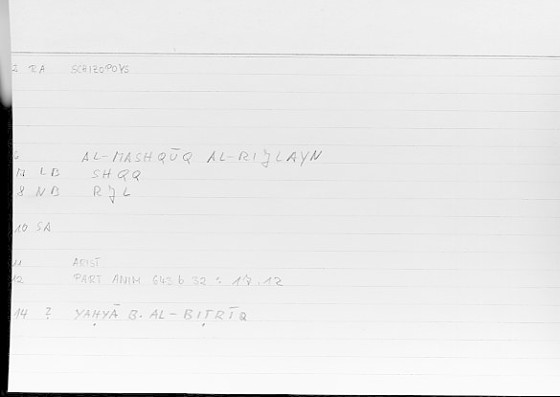 2 εA SCHIZOPOVS
6 AL-MASHQŪQ AL-RIJLAYN
LB SHQQ
8 NB RJL
10 SA
11 ARIST
12 PART ANIM 643 b 32 : 17.12
14 ? YAḤYĀ B. AL-BIṬRĪQ